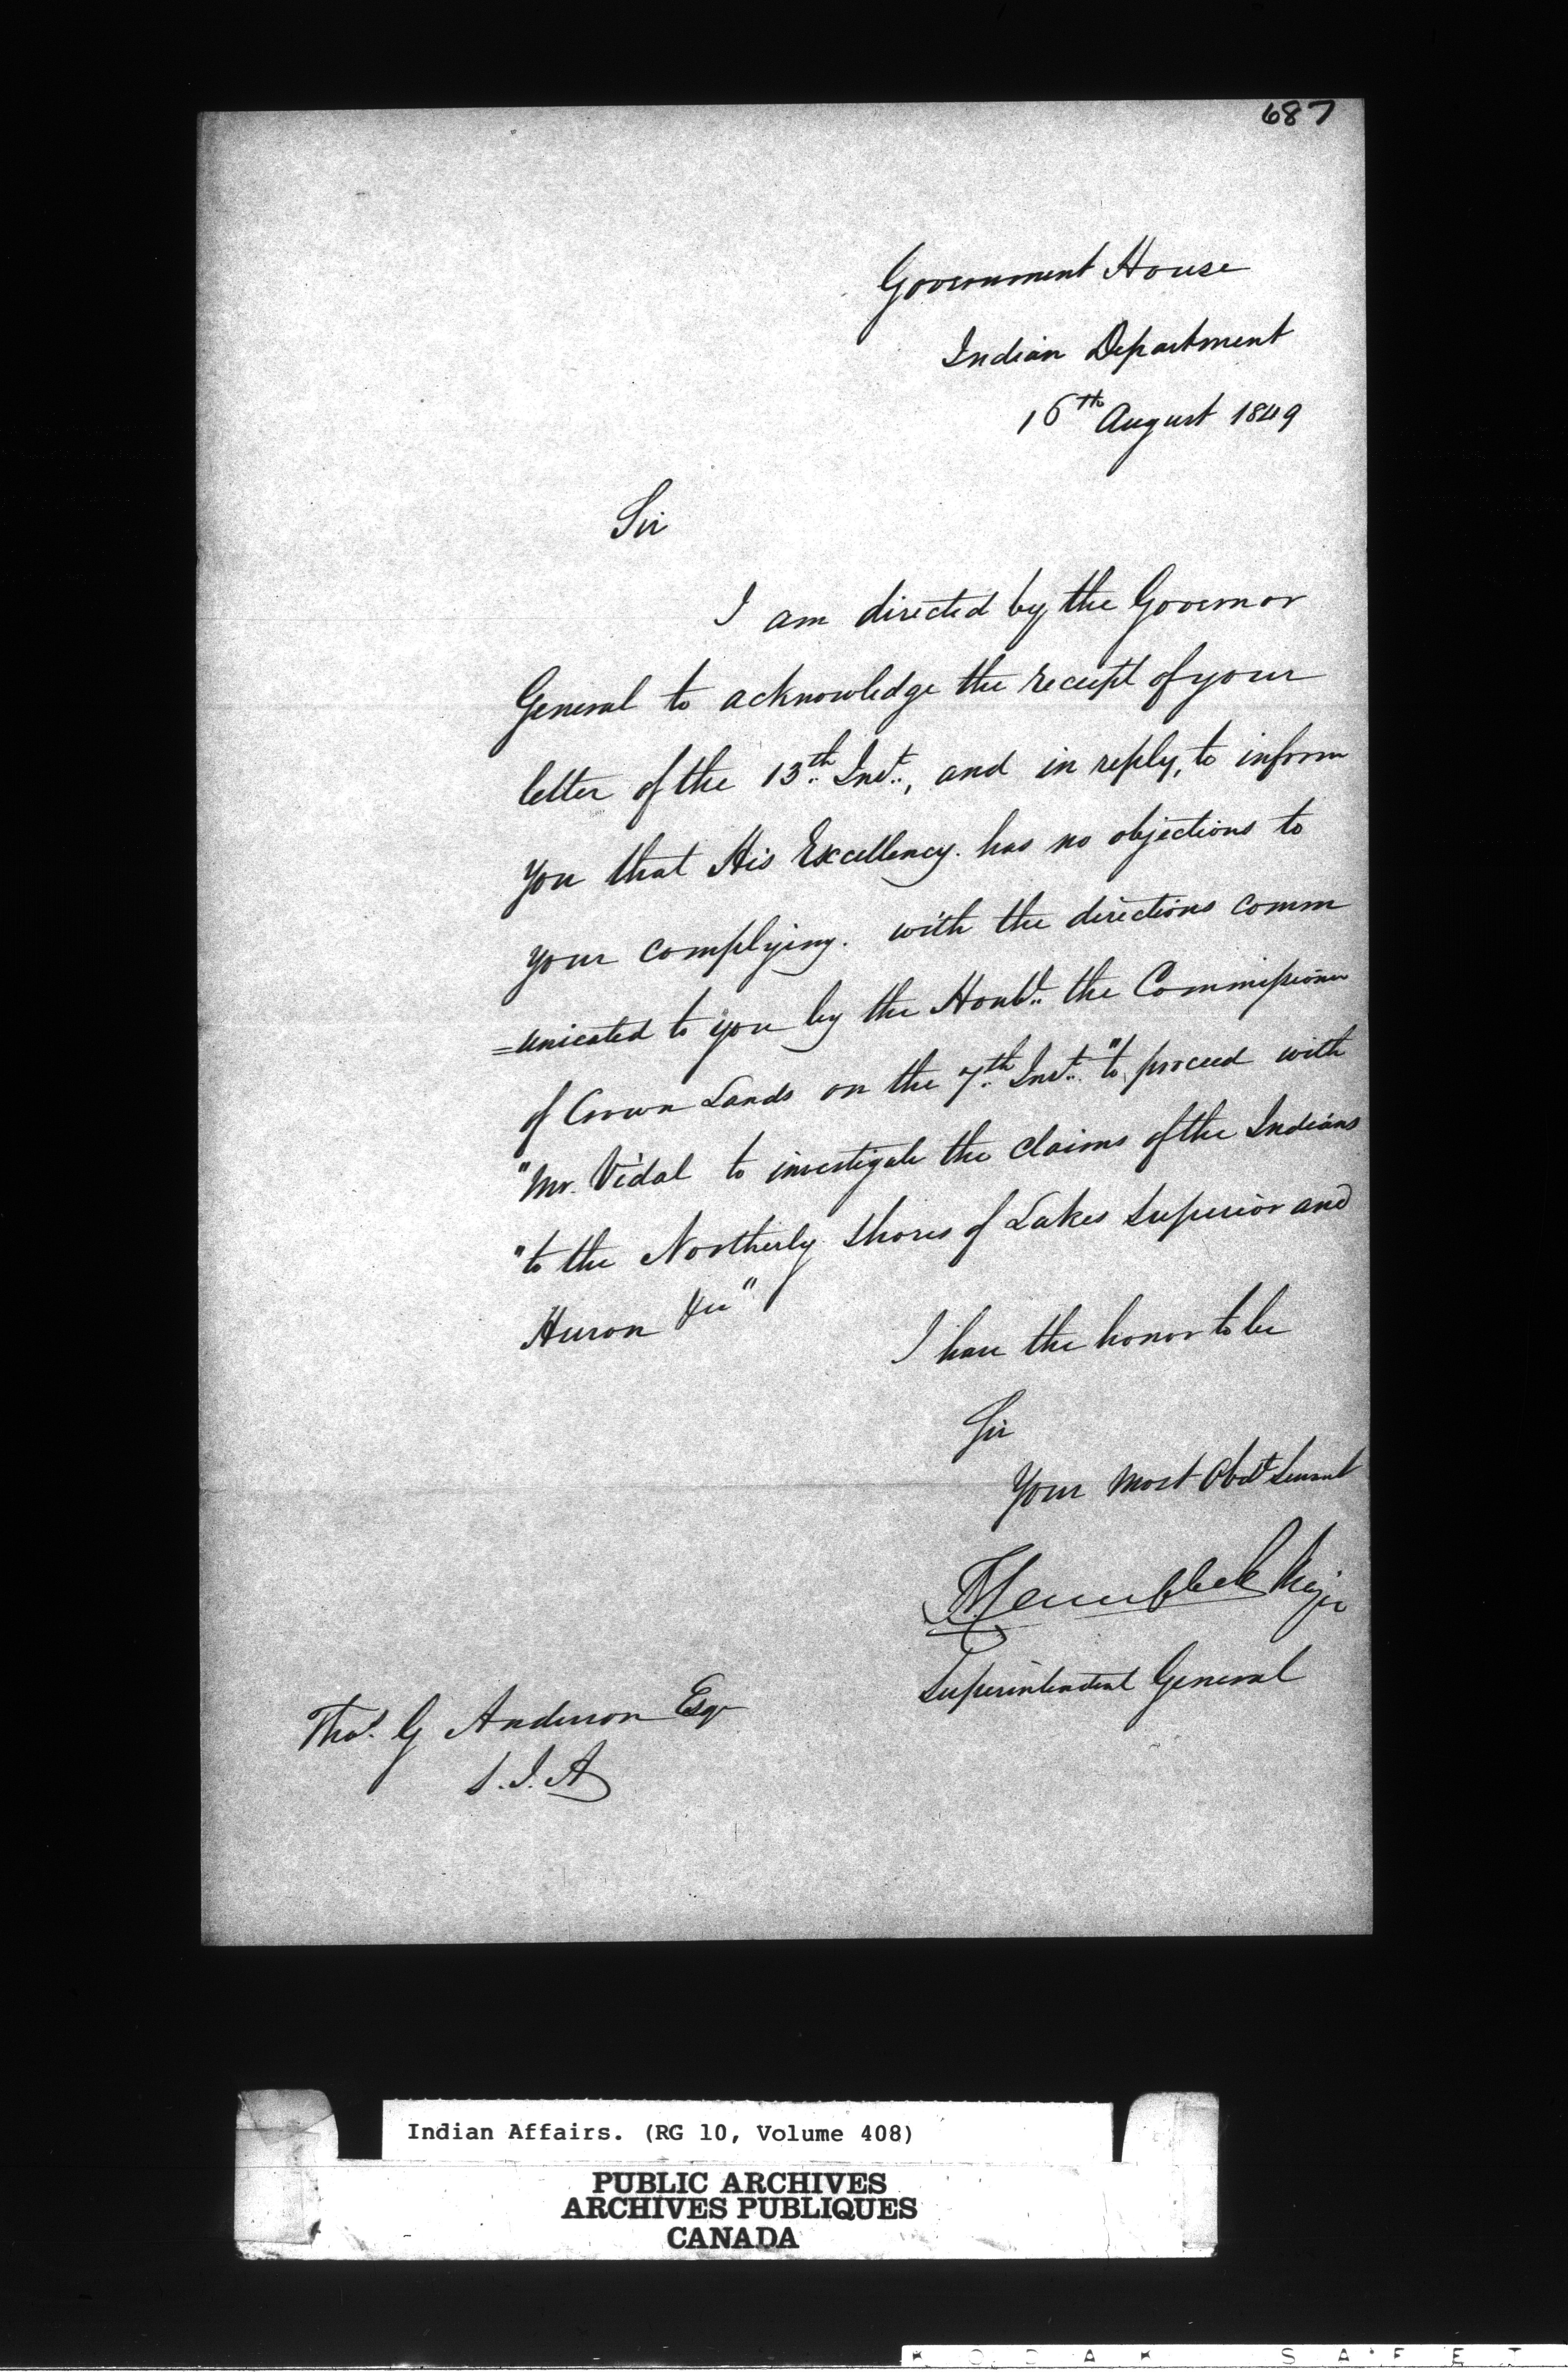 687
Government House
Indian Department
16th August 1849
Sir
I am directed by the Governor
General to acknowledge the receipt of your
letter of the 13th Inst., and in reply, to inform
you that His Excellency. has no objections to
your complying. with the directions comm
=unicated to you by the Honble. the Commissioner
of Crown Lands on the 7th Inst. "to proceed with
"Mr. Vidal to investigate the claims of the Indians
"to the Northerly shores of Lakes Superior and
Huron &c"
I have the honor to be
Sir
Your most Obdt Servant
Major
Superintendent General
Thos. G Anderson Esqr
S.I.A
Indian Affairs. (RG 10, Volume 408)
PUBLIC ARCHIVES
ARCHIVES PUBLIQUES
CANADA
KODAK SAFET